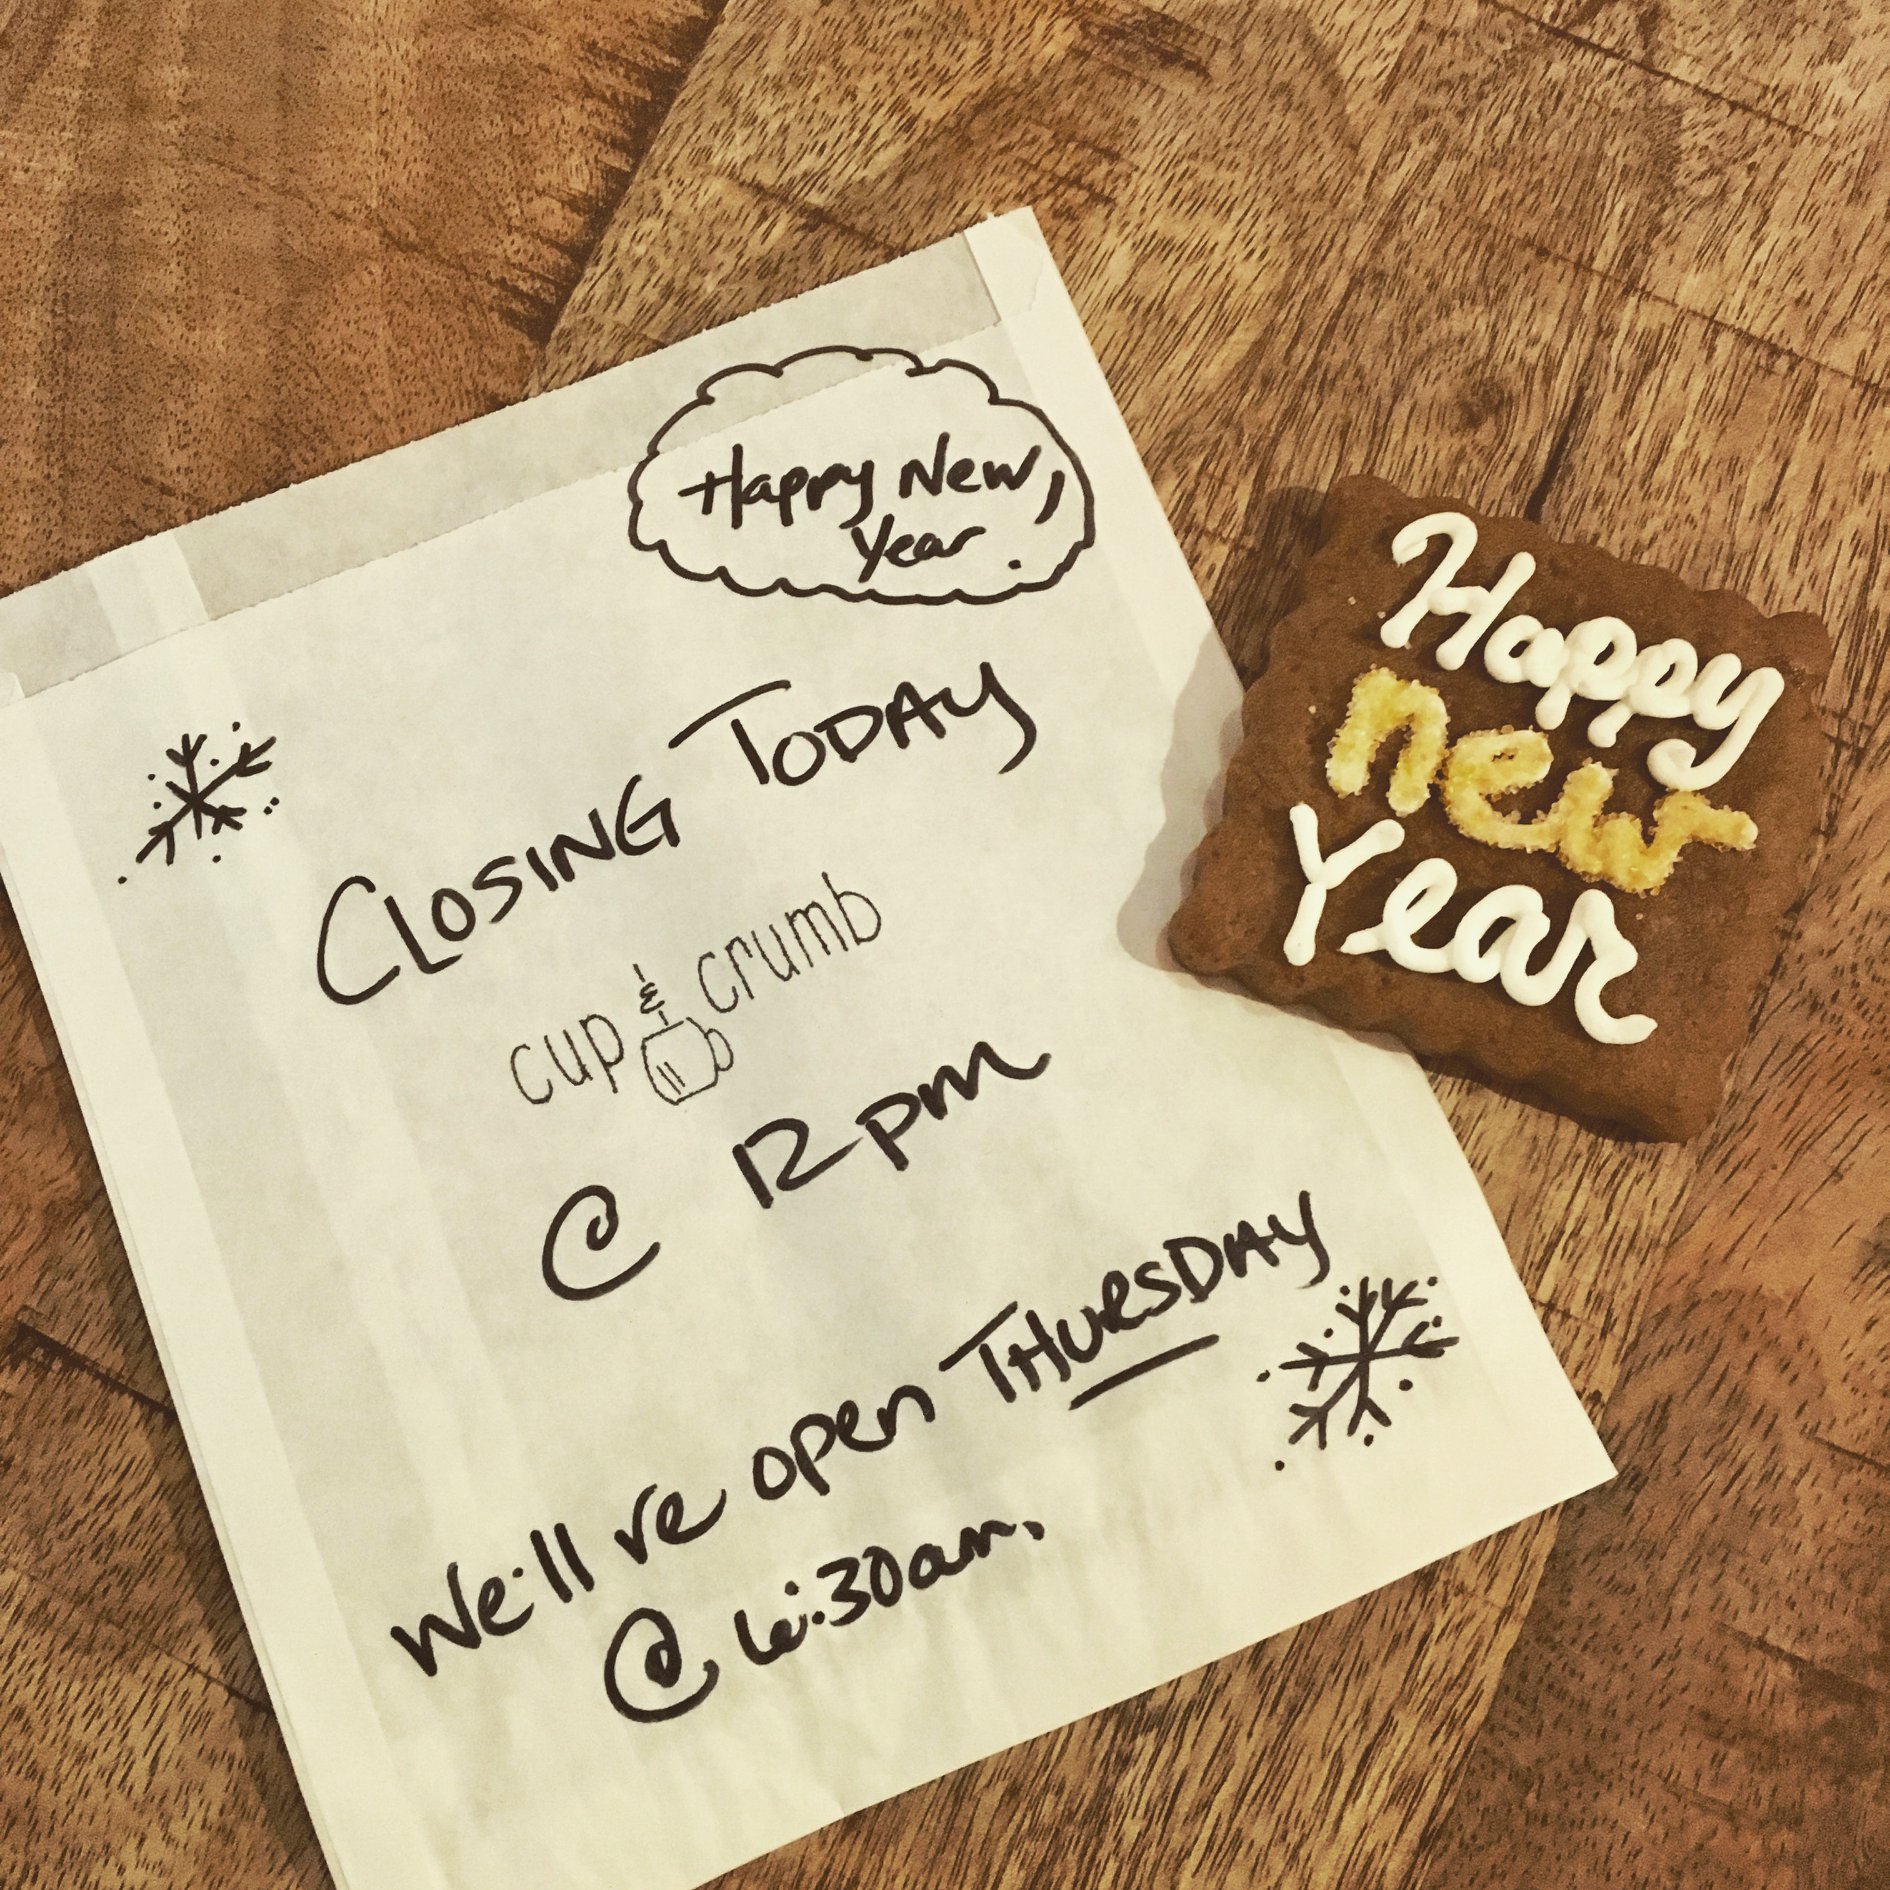 Happy New,
Year.
CLOSING TODAY
cup & crumb
@ 12pm
We'll re open THURSDAY
@ 6:30am.
Happy
new
Year